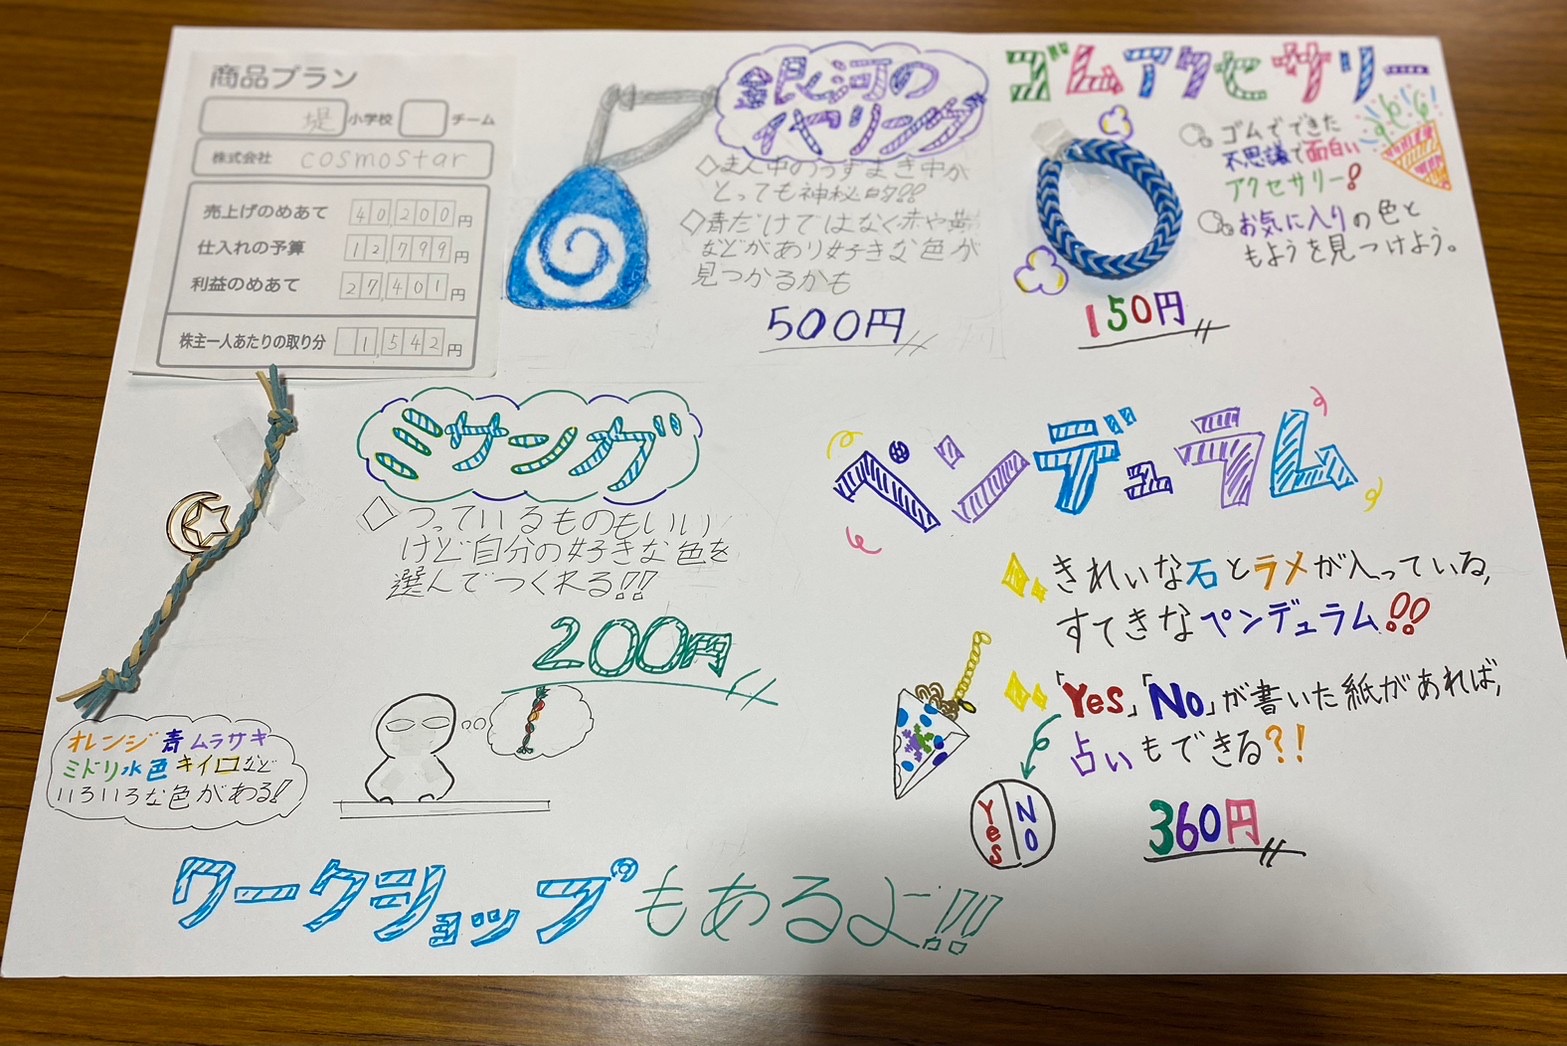 商品プラン
堤 小学校 チーム
株式会社 cosmostar
売上げのめあて 40,200円
仕入れの予算 12,799円
利益のめあて 27,401円
株主一人あたりの取り分 1,542円
銀河の
イヤリング
◇まん中のうずまき中が
とっても神秘的!!!
◇青だけではなく赤や黄
などがあり好きな色が
見つかるかも
500円
ゴムアクセサリー
ゴムでできた
不思議で面白い
アクセサリー!
お気に入りの色と
もようを見つけよう。
150円
ミサンガ
◇つっているものもいい
けど自分の好きな色を
選んでつくれる!!
200円
オレンジ青ムラサキ
ミドリ水色キイロなど
いろいろな色がある!
ペンデュラム
きれいな石とラメが入っている,
すてきなペンデュラム!!
「Yes」「No」が書いた紙があれば,
占いもできる?!
Yes No
360円
ワークショップもあるよ!!